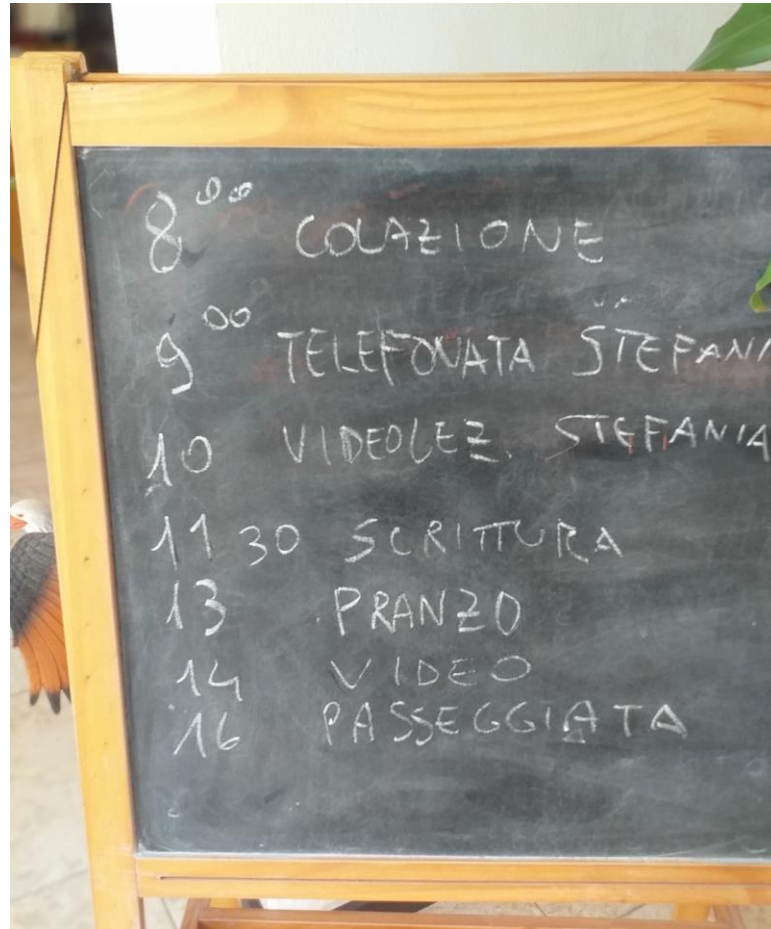 8 00 COLAZIONE
9 00 TELEFONATA STEFANI
10 VIDEOLEZ. STEFANIA
11 30 SCRITTURA
13 PRANZO
14 VIDEO
16 PASSEGGIATA